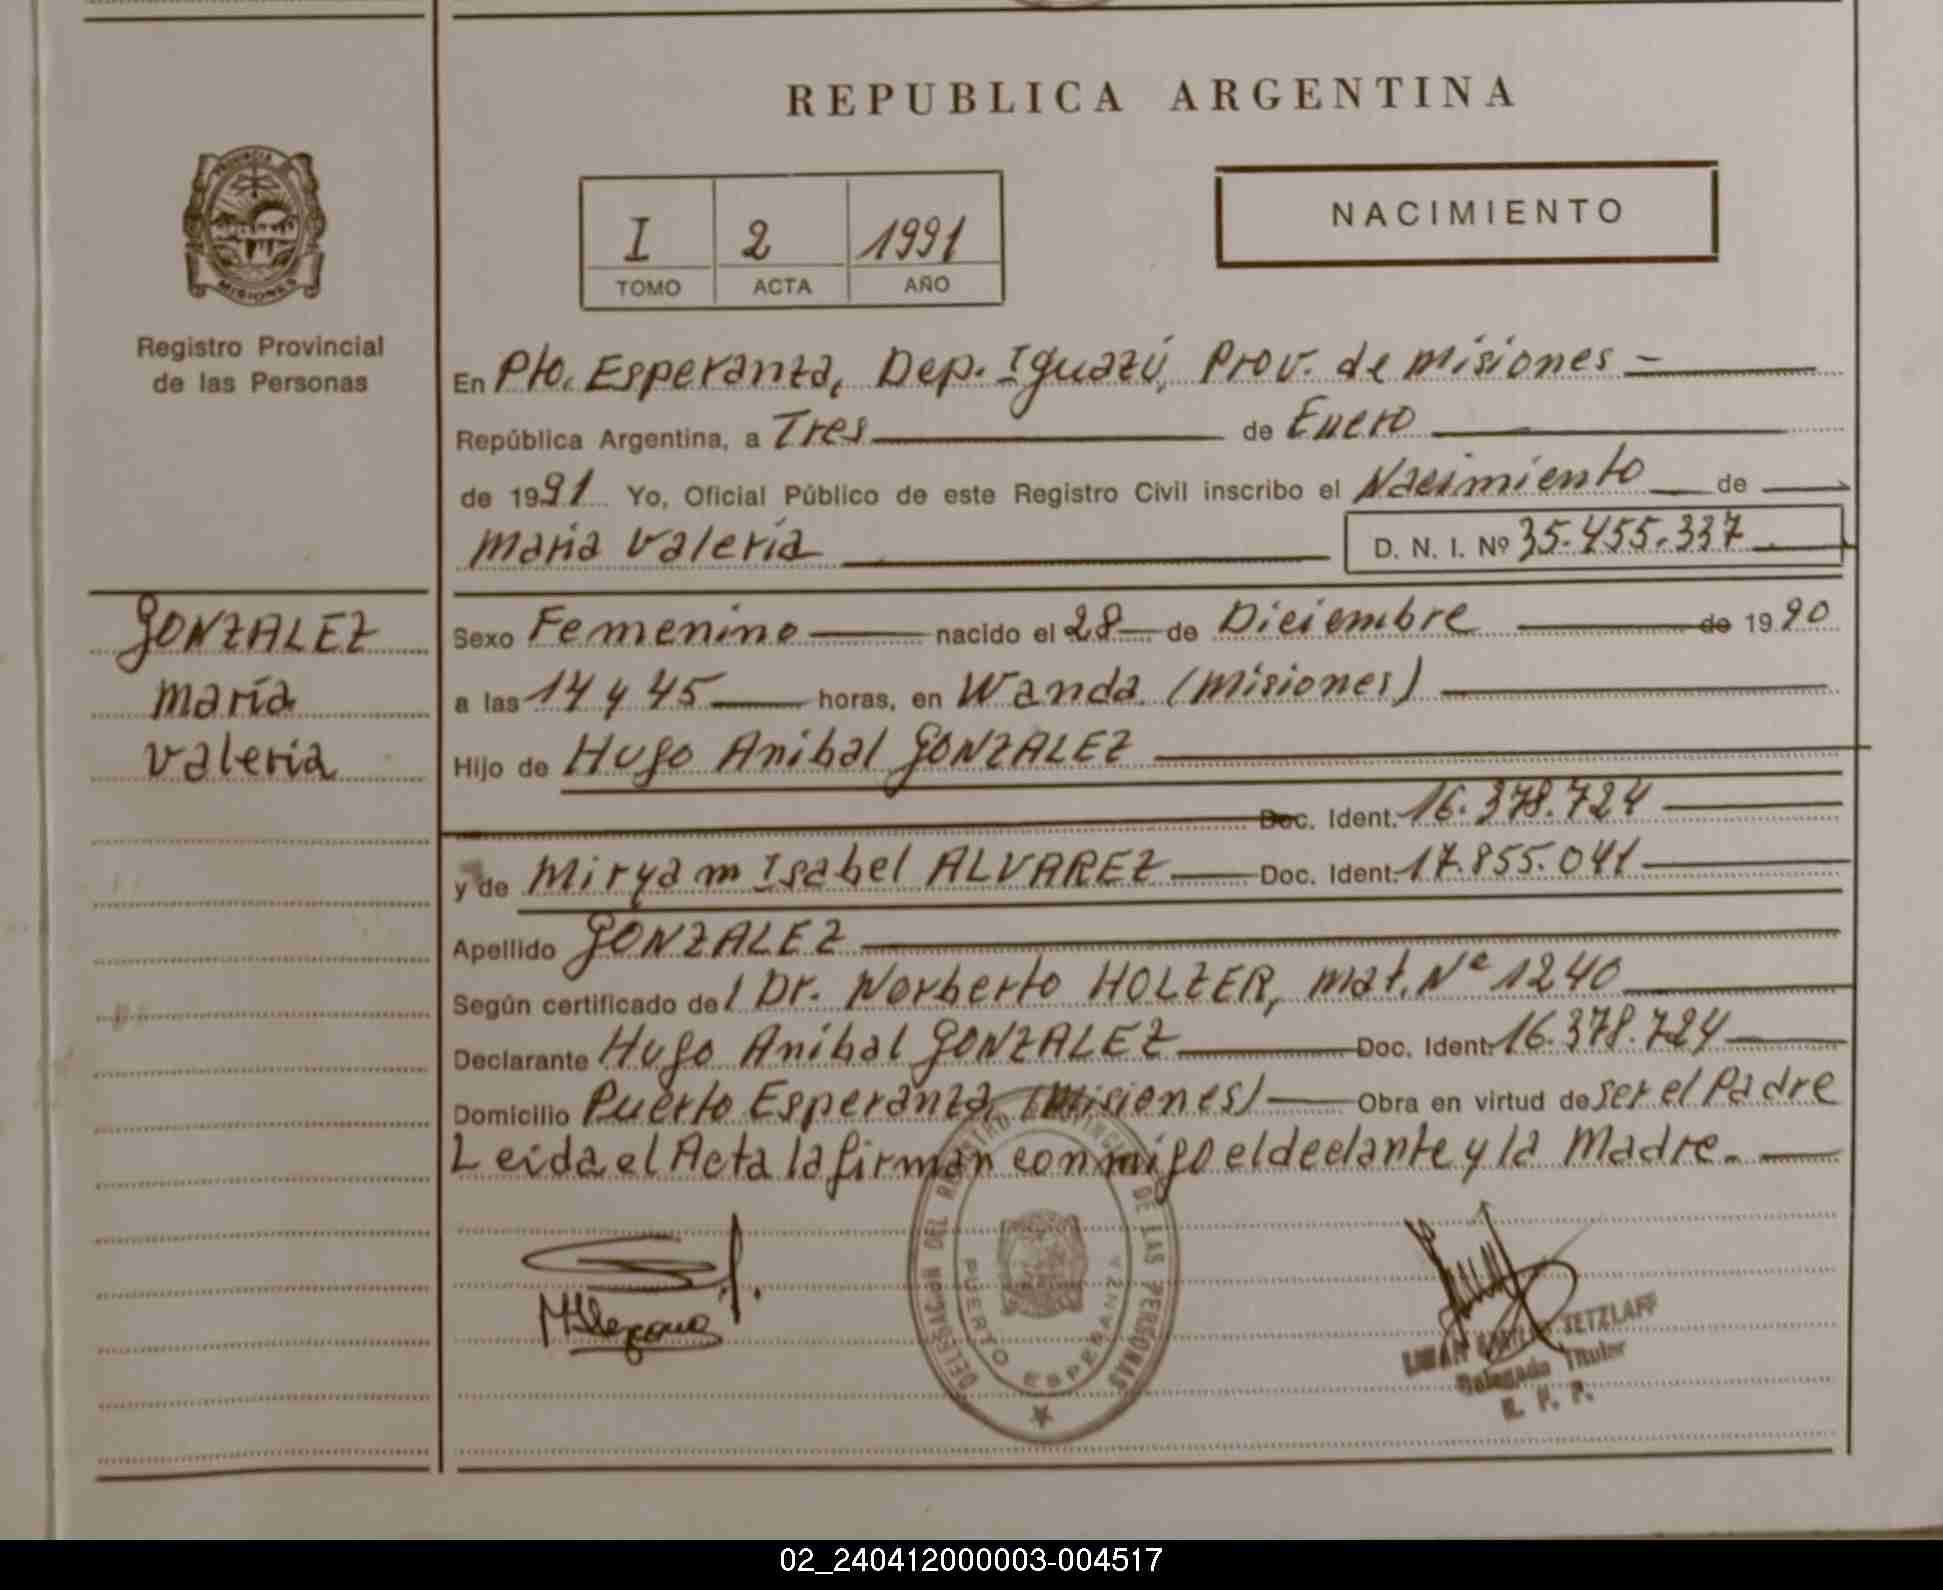 REPUBLICA ARGENTINA
PROVINCIA
MISIONES
Registro Provincial
de las Personas
I 2 1991
TOMO ACTA AÑO
NACIMIENTO
En Pto. Esperanza, Dep. Iguazú, Prov. de Misiones -
República Argentina, a Tres de Enero
de 1991 Yo, Oficial Público de este Registro Civil inscribo el Nacimiento de
María Valeria D. N. I. Nº 35.455.337
GONZALEZ
María
Valeria
Sexo Femenino nacido el 28 de Diciembre de 1990
a las 14 y 45 horas, en Wanda (Misiones)
Hijo de Hugo Anibal GONZALEZ
Doc. Ident. 16.378.724
y de Miryam Isabel ALVAREZ Doc. Ident. 17.855.041
Apellido GONZALEZ
Según certificado del Dr. Norberto HOLZER, mat. Nº 1240
Declarante Hugo Anibal GONZALEZ Doc. Ident. 16.378.724
Domicilio Puerto Esperanza (Misiones) Obra en virtud de ser el Padre
Leida el Acta la firman conmigo el declante y la Madre.
DELEGACION DEL REGISTRO PROVINCIAL DE LAS PERSONAS
PUERTO ESPERANZA
SETZLAFF
Delegado Titular
R. P. P.
02_240412000003-004517